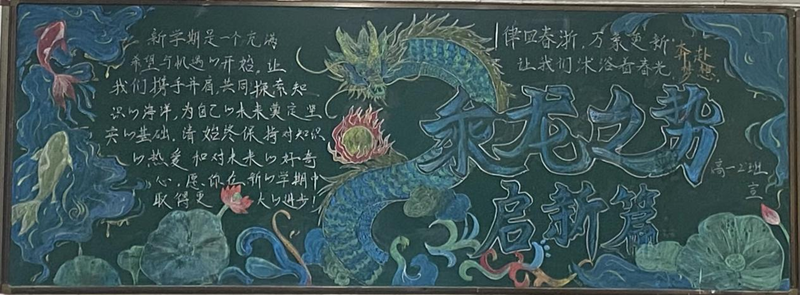 新学期是一个充满
希望与机遇的开始，让
我们携手并肩共同探索知
识的海洋，为自己的未来奠定坚
实的基础，请始终保持对知识
的热爱和对未来的好奇
心，愿你在新的学期中
取得更大的进步！
律回春渐，万象更新
让我们沐浴着春光，
奔赴
梦想
乘龙之势
启新篇
高一2班
宣